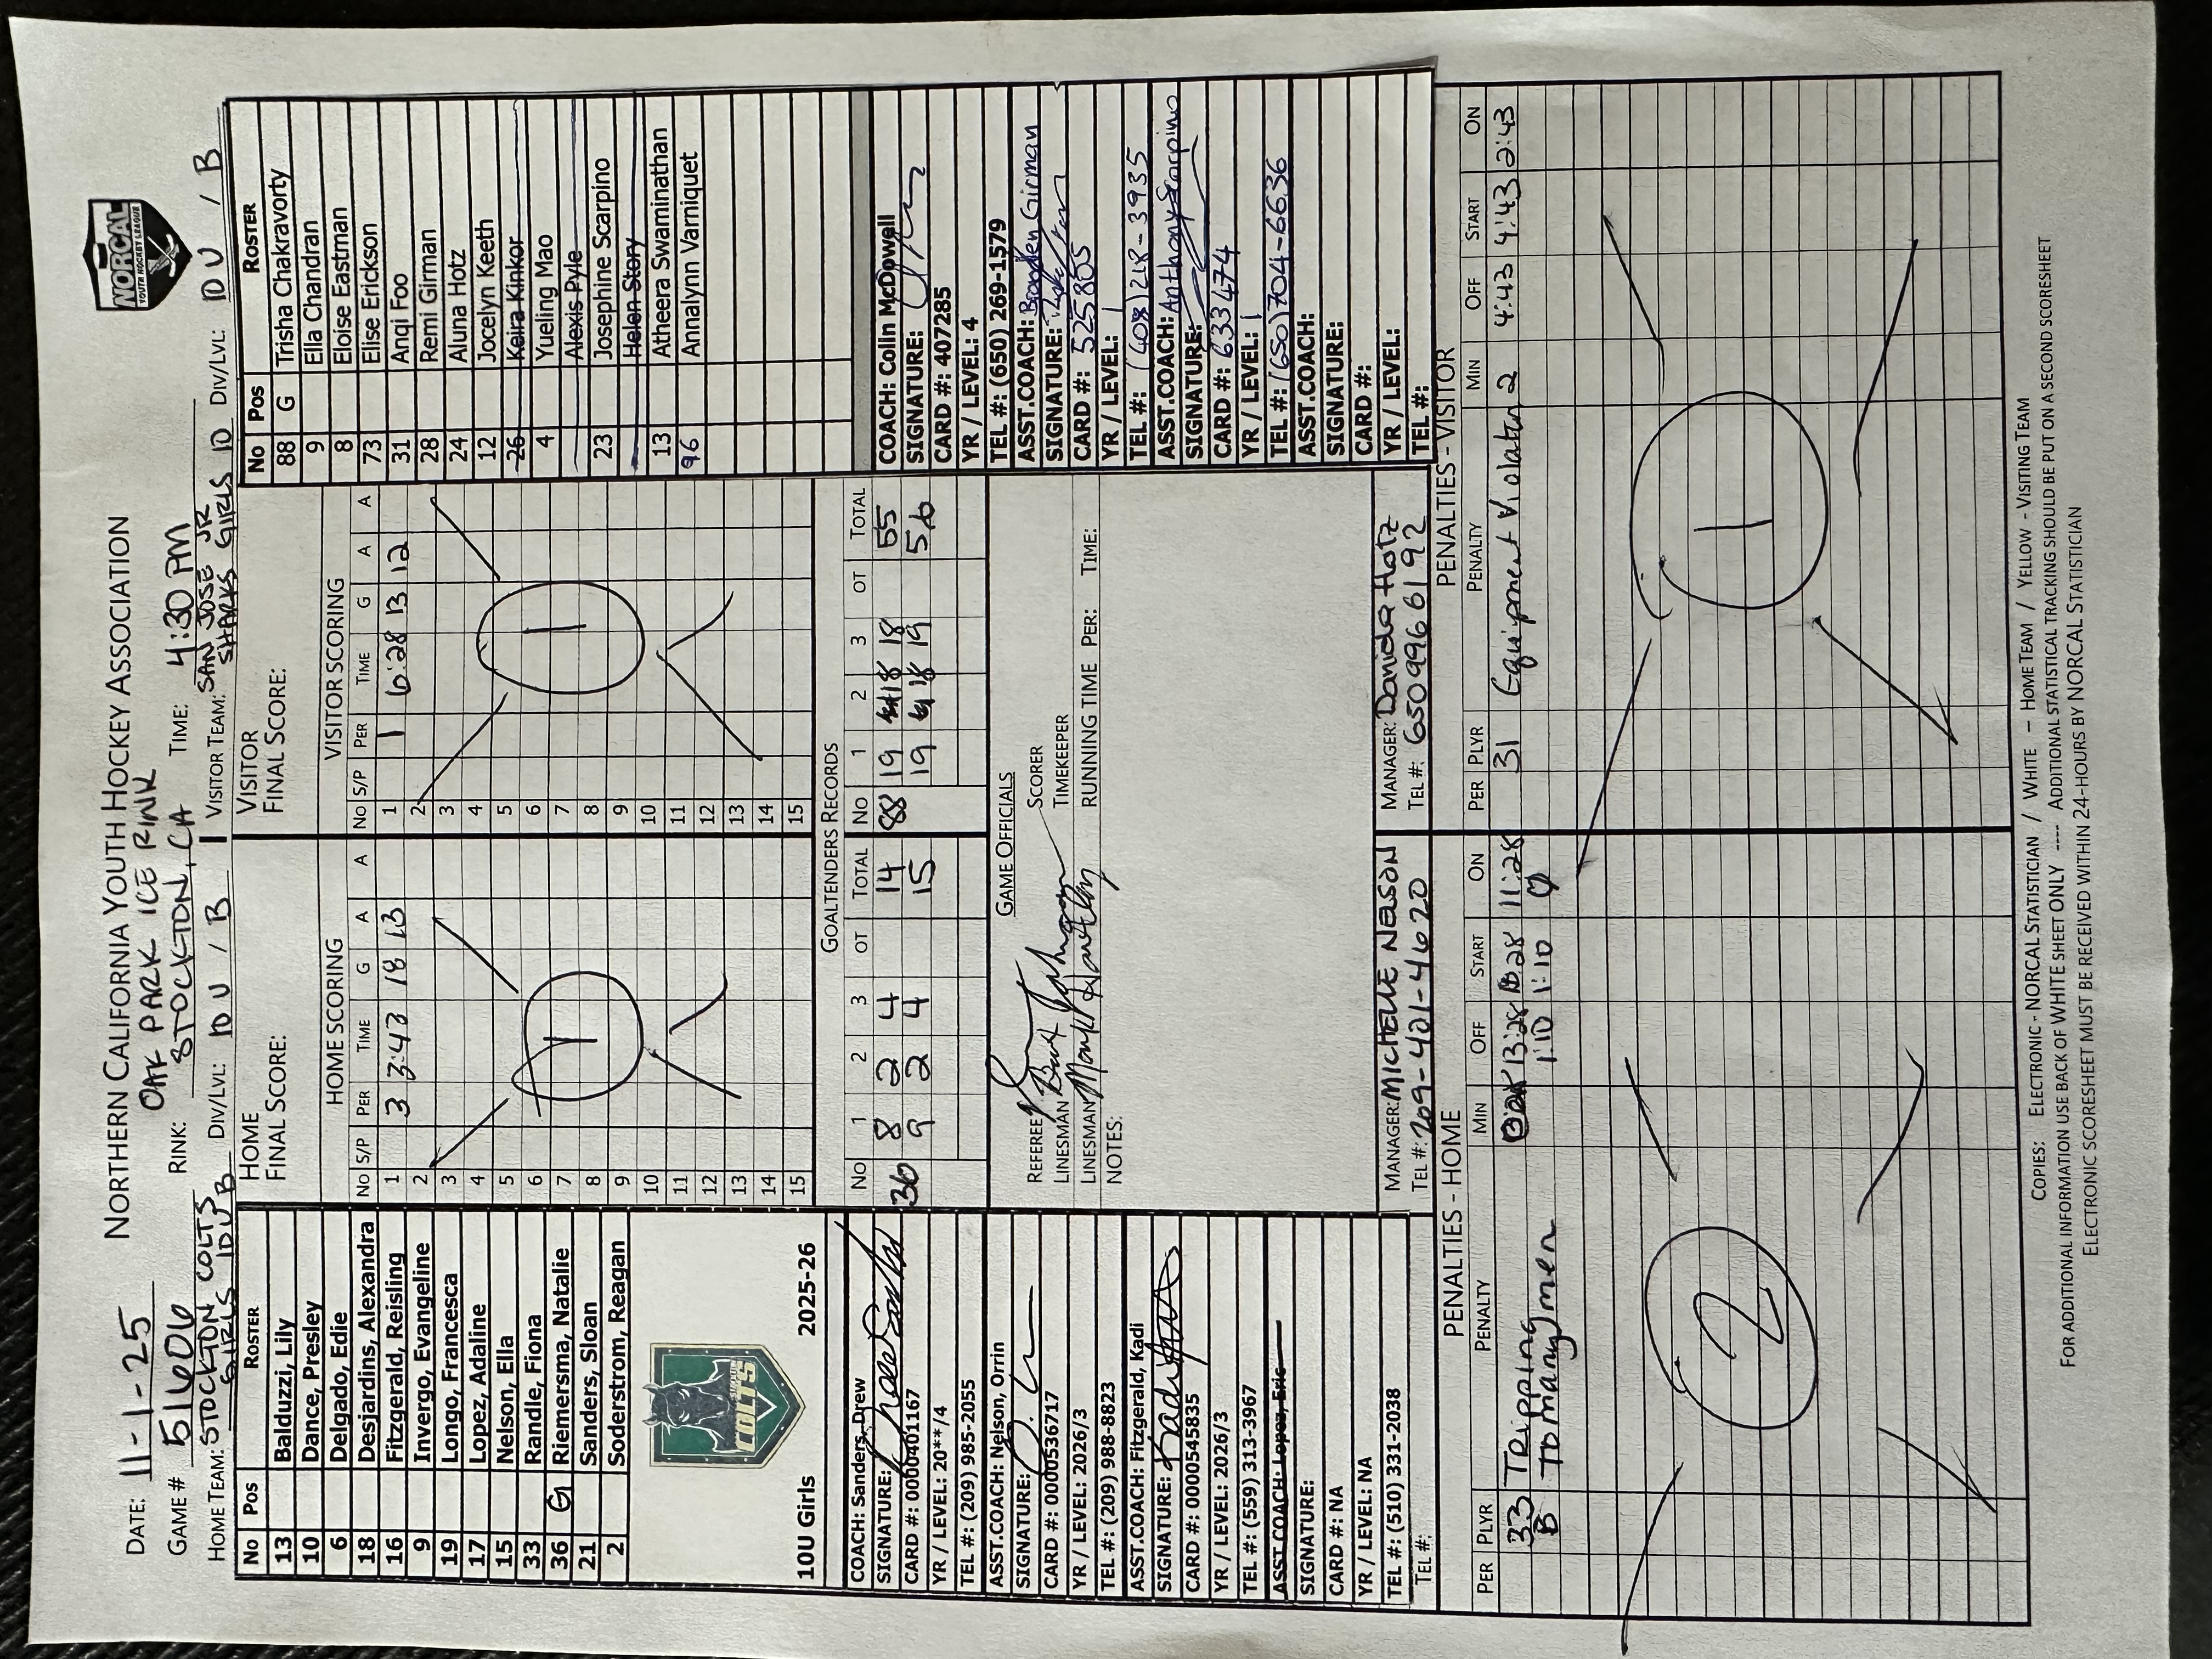 NORTHERN CALIFORNIA YOUTH HOCKEY ASSOCIATION
NORCAL
YOUTH HOCKEY LEAGUE
DATE: 11-1-25
OAK PARK ICE RINK
GAME # 51606 RINK: STOCKTON, CA TIME: 4:30 PM
HOME TEAM: STOCKTON COLTS GIRLS 10U B DIV/LVL: 10 U / B
VISITOR TEAM: SAN JOSE JR SHARKS GIRLS 10 DIV/LVL: 10 U / B
No Pos ROSTER
13 Balduzzi, Lily
10 Dance, Presley
6 Delgado, Edie
18 Desjardins, Alexandra
16 Fitzgerald, Reisling
9 Invergo, Evangeline
19 Longo, Francesca
17 Lopez, Adaline
15 Nelson, Ella
33 Randle, Fiona
36 G Riemersma, Natalie
21 Sanders, Sloan
2 Soderstrom, Reagan
COLTS
10U Girls 2025-26
COACH: Sanders, Drew
SIGNATURE:
CARD #: 0000401167
YR / LEVEL: 20**/4
TEL #: (209) 985-2055
ASST.COACH: Nelson, Orrin
SIGNATURE:
CARD #: 0000536717
YR / LEVEL: 2026/3
TEL #: (209) 988-8823
ASST.COACH: Fitzgerald, Kadi
SIGNATURE:
CARD #: 0000545835
YR / LEVEL: 2026/3
TEL #: (559) 313-3967
ASST COACH: Lopez, Eric
SIGNATURE:
CARD #: NA
YR / LEVEL: NA
TEL #: (510) 331-2038
TEL #:
HOME
FINAL SCORE:
HOME SCORING
No S/P PER TIME G A A
1 3 3:43 18 13
2
3
4
5
6
7
8
9
10
11
12
13
14
15
1
VISITOR
FINAL SCORE:
VISITOR SCORING
No S/P PER TIME G A A
1 1 6:28 13 12
2
3
4
5
6
7
8
9
10
11
12
13
14
15
1
GOALTENDERS RECORDS
No 1 2 3 OT TOTAL No 1 2 3 OT TOTAL
36 8 2 4 14 88 19 18 18 55
9 2 4 15 19 18 19 56
GAME OFFICIALS
REFEREE SCORER
LINESMAN TIMEKEEPER
LINESMAN RUNNING TIME PER: TIME:
NOTES:
MANAGER: MICHELLE NELSON
TEL #: 209-401-4620
MANAGER: Danida Hotz
TEL #: 6509966192
No Pos ROSTER
88 G Trisha Chakravorty
9 Ella Chandran
8 Eloise Eastman
73 Elise Erickson
31 Anqi Foo
28 Remi Girman
24 Aluna Hotz
12 Jocelyn Keeth
26 Keira Kinkor
4 Yueling Mao
Alexis Pyle
23 Josephine Scarpino
Helen Story
13 Atheera Swaminathan
96 Annalynn Varniquet
COACH: Colin McDowell
SIGNATURE:
CARD #: 407285
YR / LEVEL: 4
TEL #: (650) 269-1579
ASST.COACH: Branden Girman
SIGNATURE:
CARD #: 525805
YR / LEVEL: 1
TEL #: (408) 218-3935
ASST.COACH: Anthony Scarpino
SIGNATURE:
CARD #: 633474
YR / LEVEL: 1
TEL #: (650) 704-6636
ASST.COACH:
SIGNATURE:
CARD #:
YR / LEVEL:
TEL #:
PENALTIES - HOME
PER PLYR PENALTY MIN OFF START ON
33 Tripping 13:28 13:28 11:28
B To many men 1:10 1:10 0
2
PENALTIES - VISITOR
PER PLYR PENALTY MIN OFF START ON
31 Equipment Violation 2 4:43 4:43 2:43
1
COPIES: ELECTRONIC - NORCAL STATISTICIAN / WHITE – HOME TEAM / YELLOW - VISITING TEAM
FOR ADDITIONAL INFORMATION USE BACK OF WHITE SHEET ONLY ---- ADDITIONAL STATISTICAL TRACKING SHOULD BE PUT ON A SECOND SCORESHEET
ELECTRONIC SCORESHEET MUST BE RECEIVED WITHIN 24-HOURS BY NORCAL STATISTICIAN